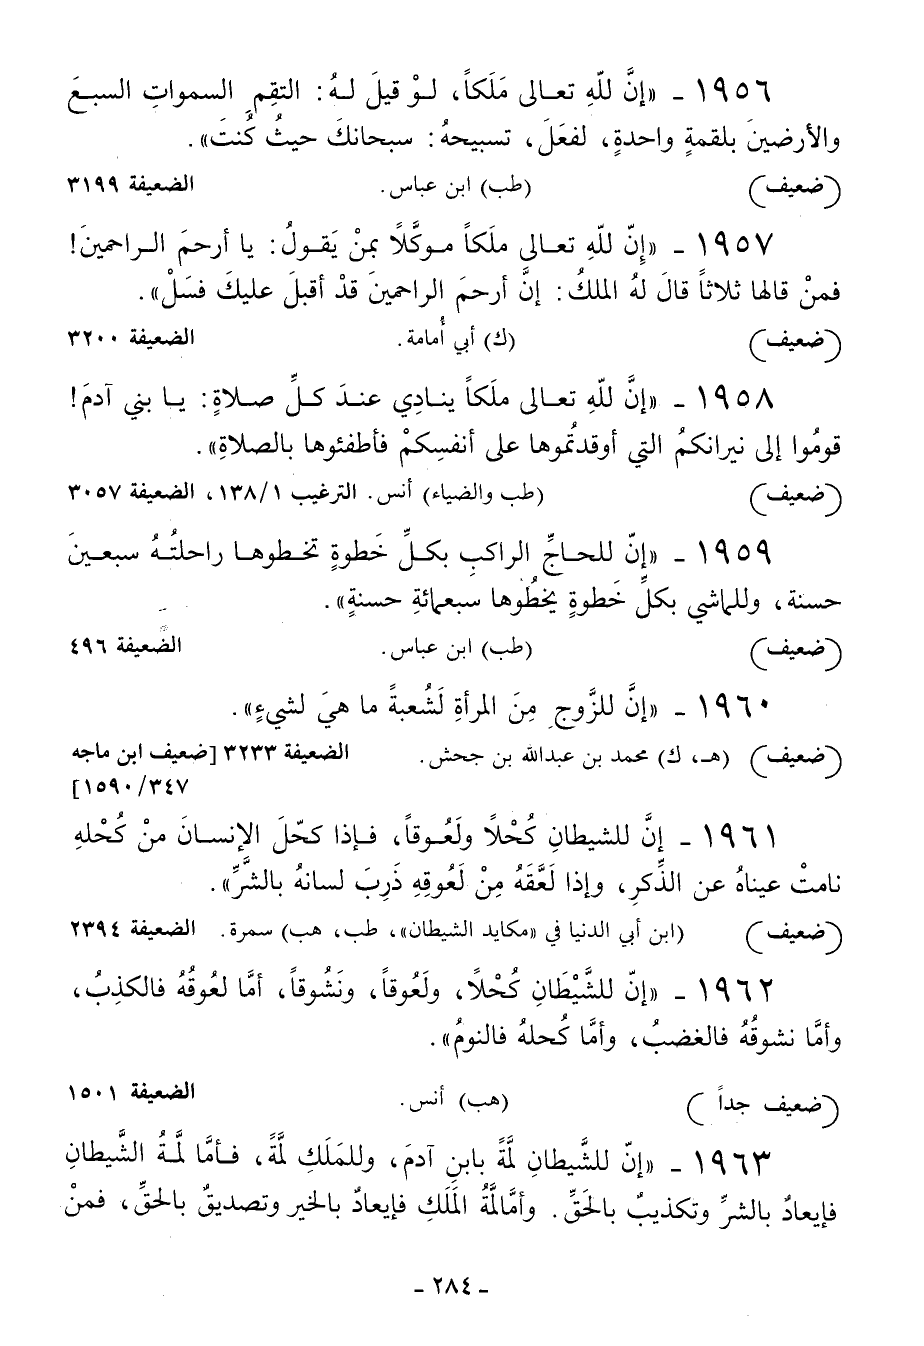 ١٩٥٦ - «إنَّ للّهِ تعـالى مَلَكاً، لـوْ قيلَ لـهُ: التقِم السمواتِ السبـعَ
والأرضينَ بلقمةٍ واحدةٍ، لفعَلَ، تسبيحهُ: سبحانكَ حيثُ كُنتَ».
(ضعيف) (طب) ابن عباس. الضعيفة ٣١٩٩
١٩٥٧ - «إنّ للّهِ تعـالى ملَكاً مـوكَّلاً بمنْ يَقـولُ: يا أرحمَ الـراحمينَ!
فمنْ قالها ثلاثاً قالَ لهُ الملكُ: إنَّ أرحمَ الراحمينَ قدْ أقبلَ عليكَ فسَلْ».
(ضعيف) (ك) أبي أُمامة. الضعيفة ٣٢٠٠
١٩٥٨ - «إنَّ للّهِ تعـالى ملَكاً ينـادِي عنـدَ كـلِّ صـلاةٍ: يـا بني آدمَ!
قومُوا إلى نيرانكمُ التي أوقدتُموها على أنفسِكمْ فأطفئوها بالصلاةِ».
(ضعيف) (طب والضياء) أنس. الترغيب ١٣٨/١، الضعيفة ٣٠٥٧
١٩٥٩ - «إنّ للحـاجِّ الراكبِ بكـلِّ خَطوةٍ تخـطوهـا راحلتُـهُ سبعـينَ
حسنة، وللماشي بكلِّ خَطوةٍ يخطُوها سبعمائةِ حسنةٍ».
(ضعيف) (طب) ابن عباس. الضعيفة ٤٩٦
١٩٦٠ - «إنَّ للزَّوجِ مِنَ المرأةِ لَشُعبةً ما هيَ لشيءٍ».
(ضعيف) (هـ، ك) محمد بن عبدالله بن جحش. الضعيفة ٣٢٣٣ [ضعيف ابن ماجه
١٥٩٠/٣٤٧]
١٩٦١ - إنَّ للشيطانِ كُحْلاً ولَعُـوقاً، فـإذا كحّلَ الإنسـانَ منْ كُحْلهِ
نامتْ عيناهُ عن الذِّكرِ، وإذا لَعَّقَهُ مِنْ لَعُوقِهِ ذَرِبَ لسانهُ بالشَّرِّ».
(ضعيف) (ابن أبي الدنيا في «مكايد الشيطان»، طب، هب) سمرة. الضعيفة ٢٣٩٤
١٩٦٢ - «إنّ للشَّيْطَانِ كُحْلاً، ولَعُوقاً، ونَشُوقاً، أمَّا لعُوقُهُ فالكذِبُ،
وأمَّا نشوقُهُ فالغضبُ، وأمَّا كُحلهُ فالنومُ».
(ضعيف جداً) (هب) أنس. الضعيفة ١٥٠١
١٩٦٣ - «إنّ للشَّيطانِ لمَّةً بابنِ آدمَ، وللمَلَكِ لمَّةً، فـأمَّا لمَّـةُ الشَّيطانِ
فإيعادٌ بالشرِّ وتكذيبٌ بالحَقِّ. وأمَّالمَّةُ المَلَكِ فإيعادٌ بالخيرِ وتصديقٌ بالحقِّ، فمنْ
- ٢٨٤ -